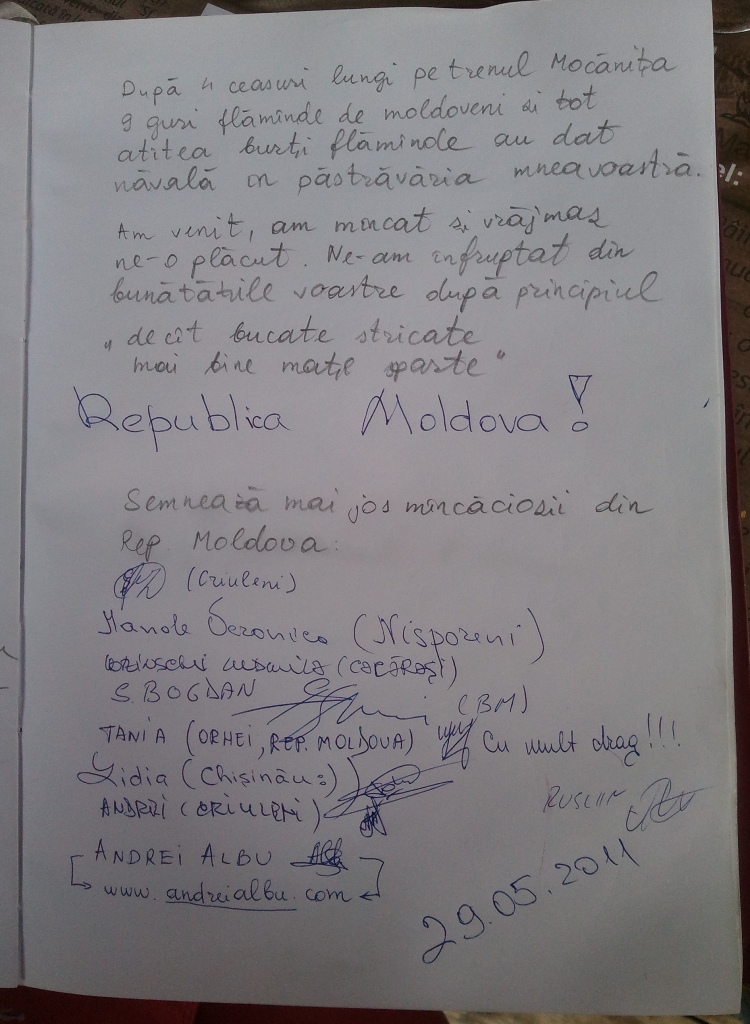 După 4 ceasuri lungi pe trenul Mocănița
9 guri flămînde de moldoveni si tot
atitea burți flămînde au dat
năvală in păstrăvăria mneavoastră.
Am venit, am mincat si vrăjmaș
ne-o plăcut. Ne-am infruptat din
bunătătile voastre după principiul
„decît bucate stricate
mai bine mațe sparte"
Republica Moldova!
Semnează mai jos mîncăciosii din
Rep. Moldova:
(Criuleni)
Manole Veronica (Nisporeni)
S. BOGDAN (BM)
TANIA (ORHEI, REP. MOLDOVA) Cu mult drag!!!
Lidia (Chișinău:)
ANDREI (CRIULENI)
RUSLAN
ANDREI ALBU
www.andreialbu.com
29.05.2011